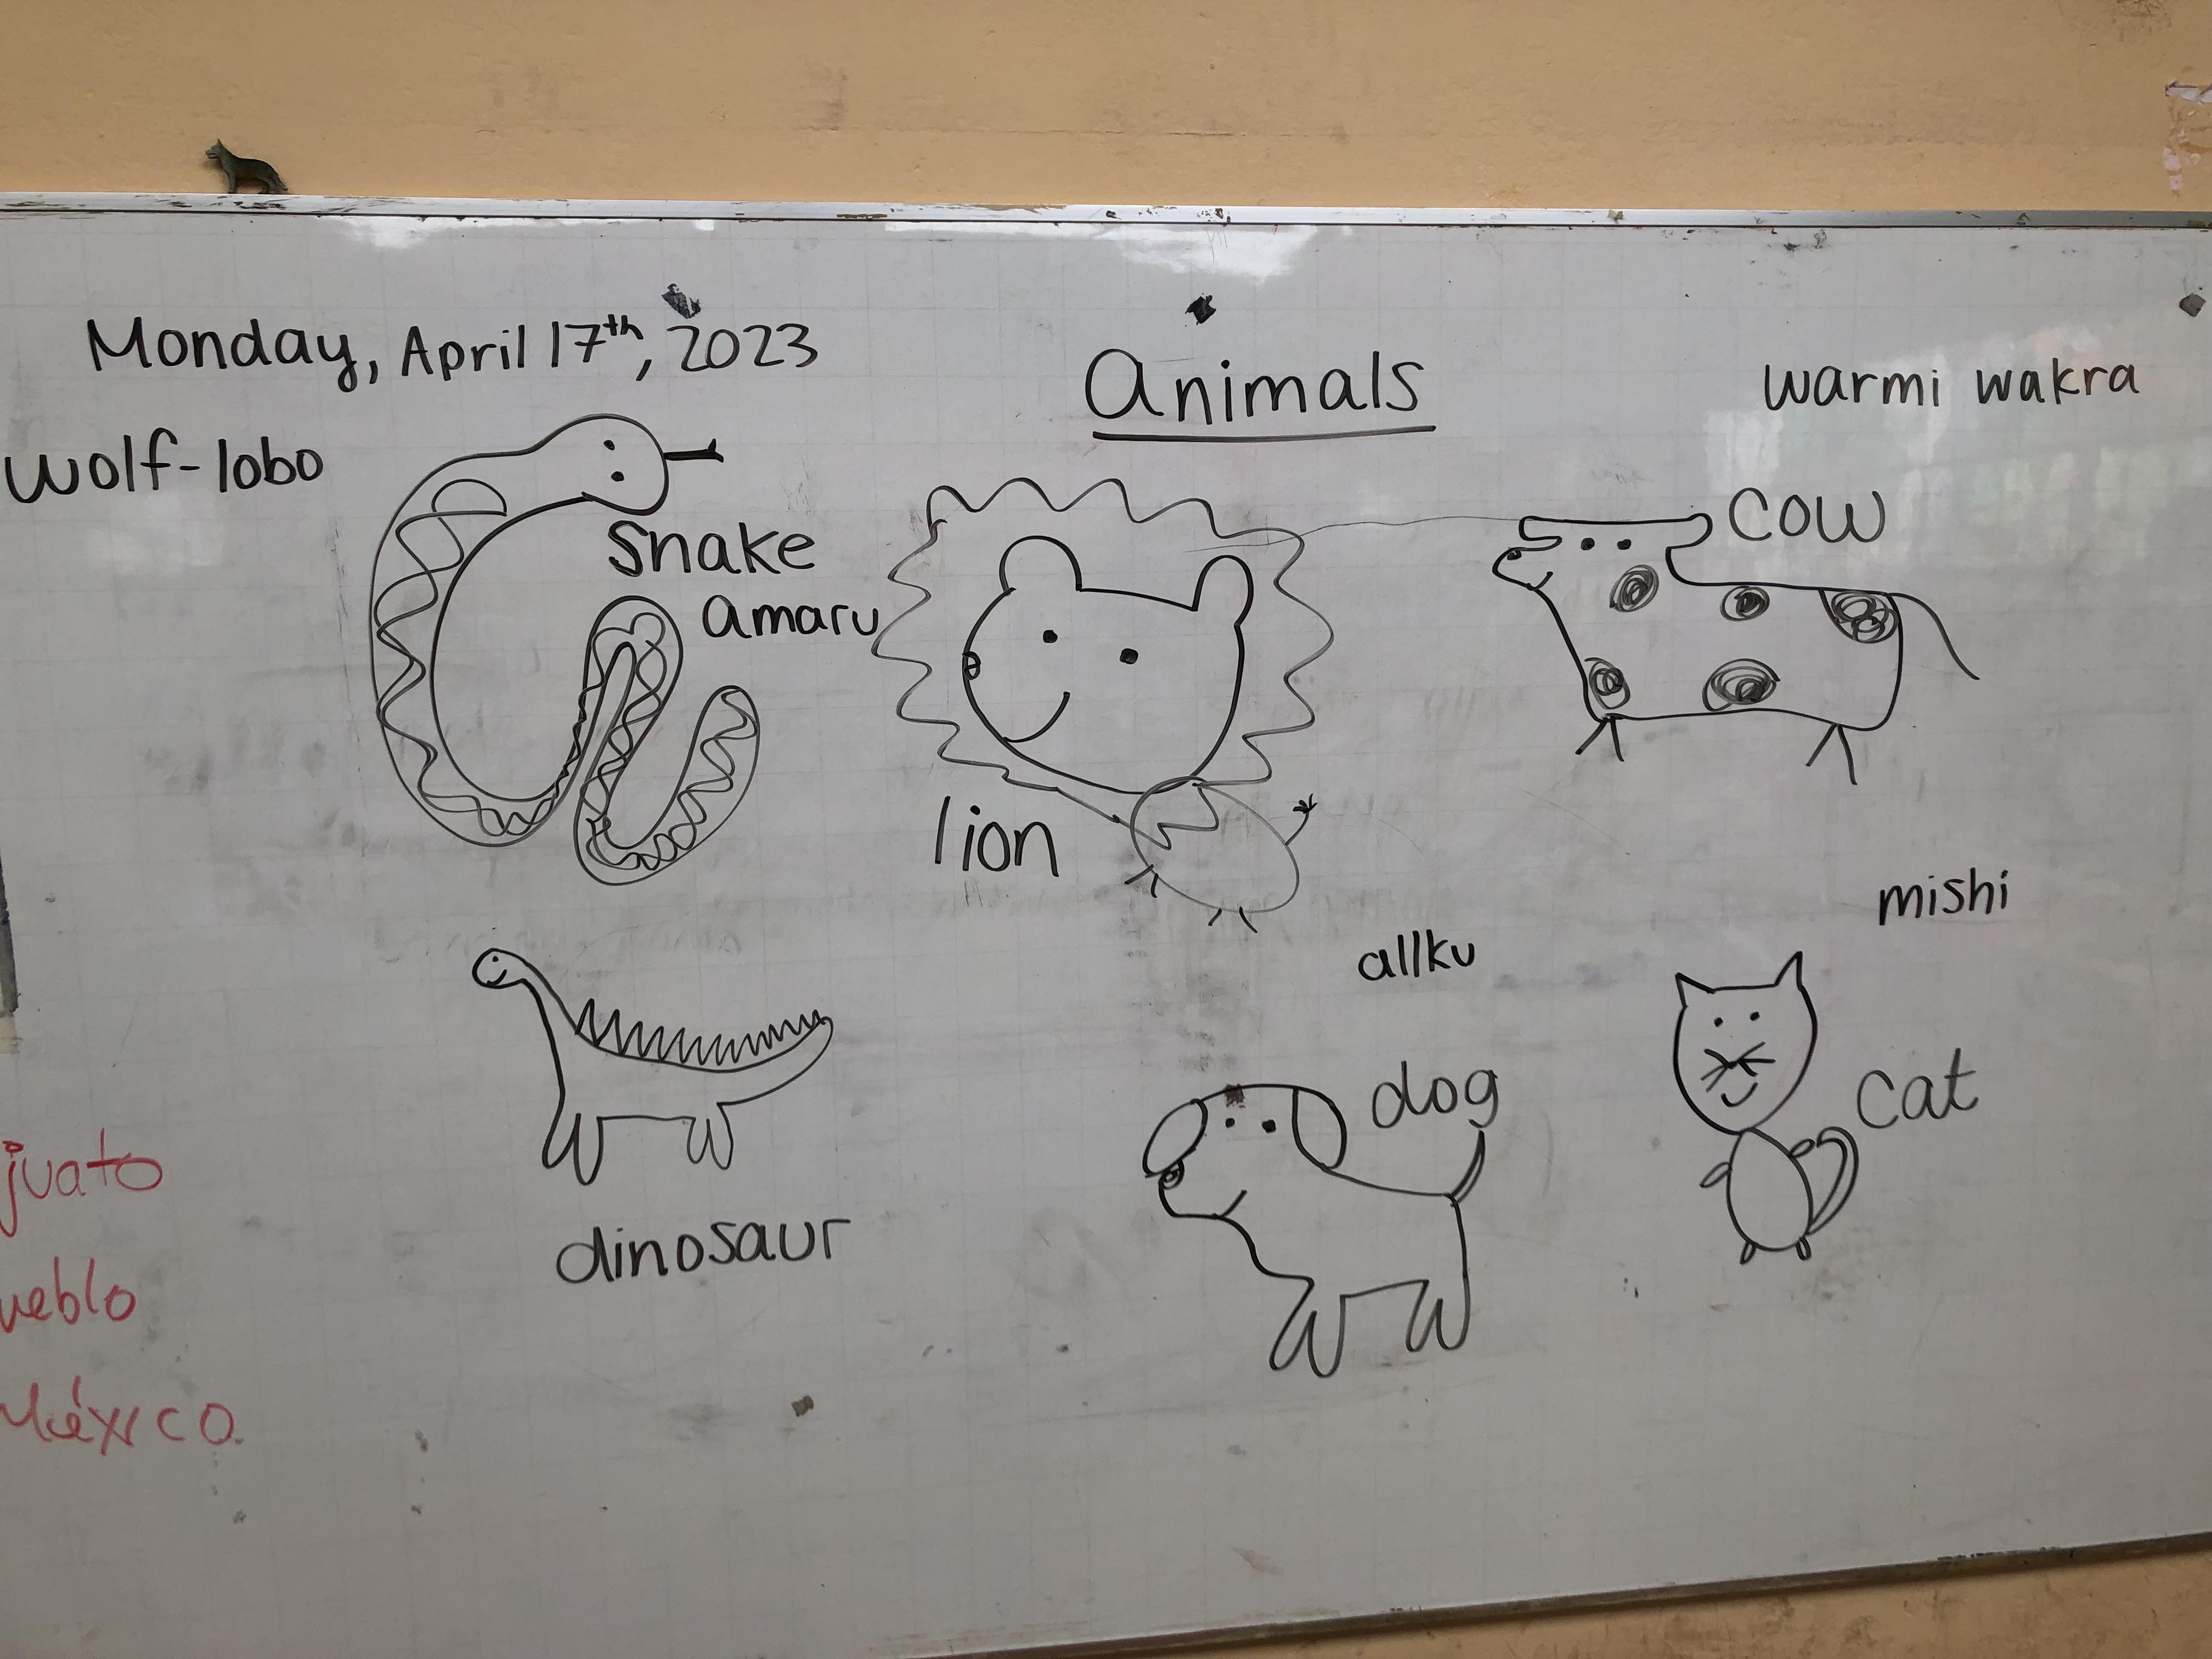 Monday, April 17th, 2023
Animals
warmi wakra
wolf-lobo
cow
snake
amaru
lion
mishi
allku
dog
cat
dinosaur
juato
ueblo
México